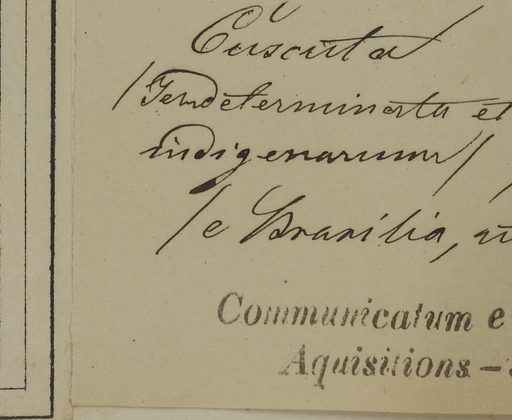 Cuscuta
/Indeterminata et
indigenarum/
/e Brasilia,
Communicatum e
Aquisitions –